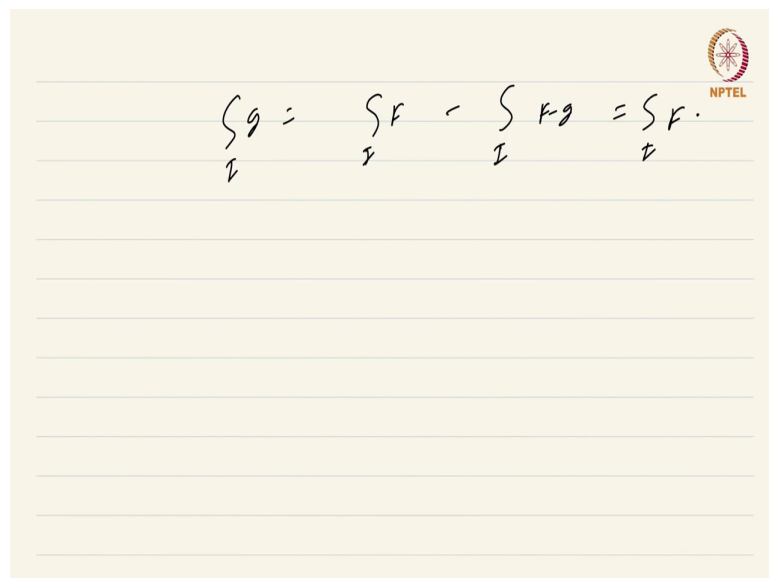 NPTEL
∫_I g = ∫_I F - ∫_I F-g = ∫_I F.